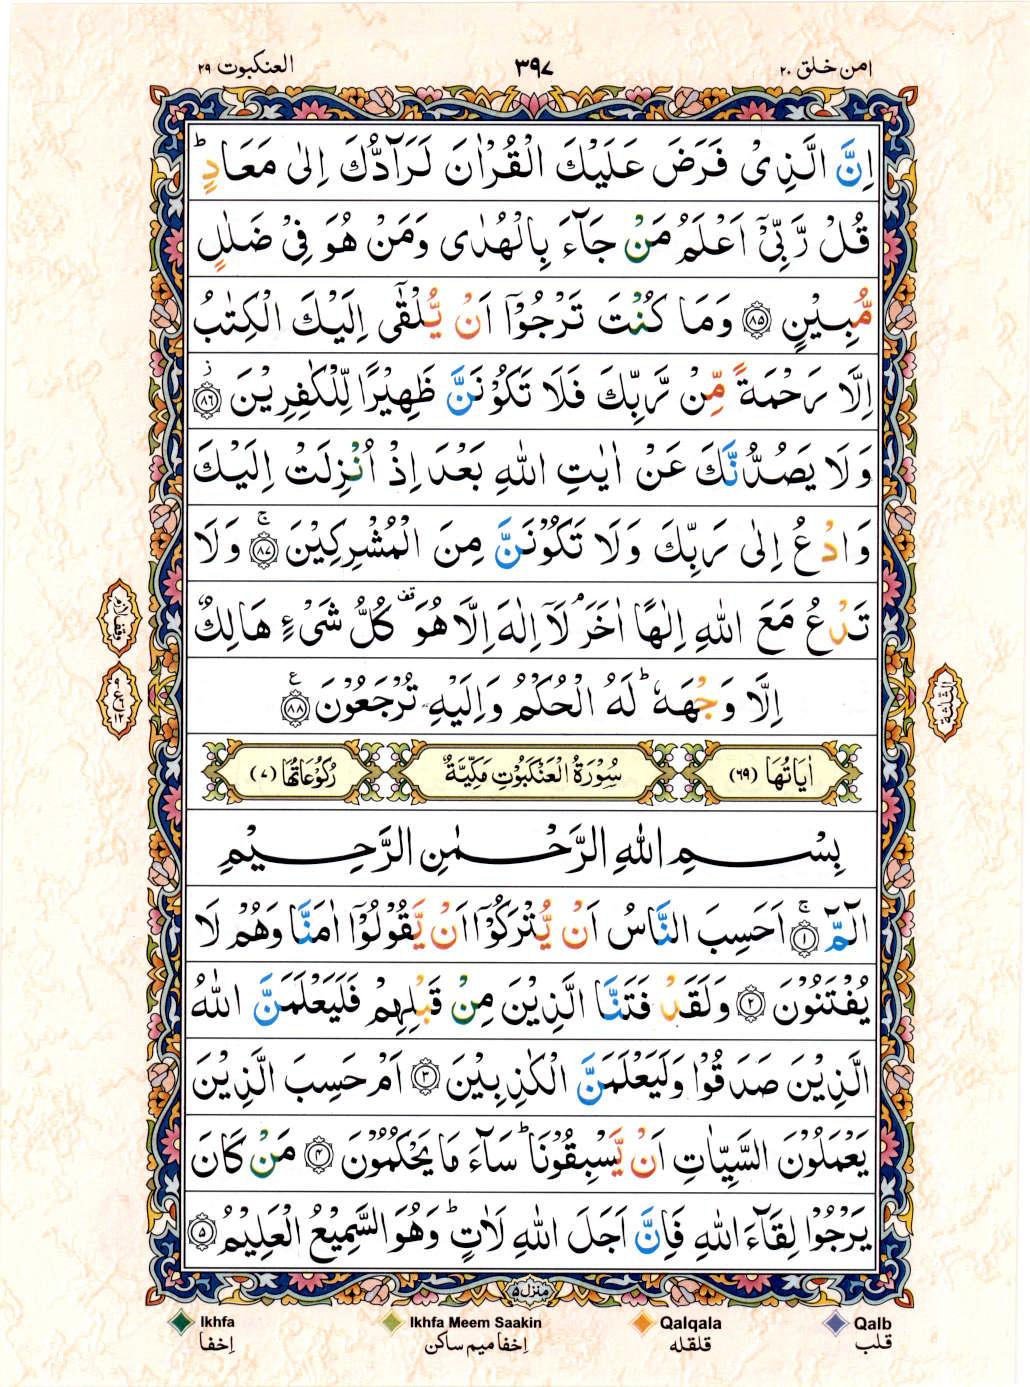 امن خلق ۲۰
۳۹۷
العنکبوت ۲۹
اِنَّ الَّذِیْ فَرَضَ عَلَیْكَ الْقُرْاٰنَ لَرَآدُّكَ اِلٰی مَعَادٍ ؕ
قُلْ رَّبِّیْۤ اَعْلَمُ مَنْ جَآءَ بِالْهُدٰی وَمَنْ هُوَ فِیْ ضَلٰلٍ
مُّبِیْنٍ ﴿۸۵﴾ وَمَا كُنْتَ تَرْجُوْۤا اَنْ یُّلْقٰۤی اِلَیْكَ الْكِتٰبُ
اِلَّا رَحْمَةً مِّنْ رَّبِّكَ فَلَا تَكُوْنَنَّ ظَهِیْرًا لِّلْكٰفِرِیْنَ ﴿۸۶﴾ ؗ
وَلَا یَصُدُّنَّكَ عَنْ اٰیٰتِ اللّٰهِ بَعْدَ اِذْ اُنْزِلَتْ اِلَیْكَ
وَادْعُ اِلٰی رَبِّكَ وَلَا تَكُوْنَنَّ مِنَ الْمُشْرِكِیْنَ ﴿۸۷﴾ ۚ وَلَا
تَدْعُ مَعَ اللّٰهِ اِلٰهًا اٰخَرَ ۘ لَاۤ اِلٰهَ اِلَّا هُوَ ۫ كُلُّ شَیْءٍ هَالِكٌ
اِلَّا وَجْهَهٗ ؕ لَهُ الْحُكْمُ وَاِلَیْهِ تُرْجَعُوْنَ ﴿۸۸﴾ ع
وقف لازم
الثلثة
اٰیَاتُهَا (۶۹)
سُوْرَةُ الْعَنْكَبُوْتِ مَكِّیَّةٌ
رُكُوْعَاتُهَا (۷)
بِسْمِ اللّٰهِ الرَّحْمٰنِ الرَّحِیْمِ
الٓمّٓ ﴿۱﴾ ۚ اَحَسِبَ النَّاسُ اَنْ یُّتْرَكُوْۤا اَنْ یَّقُوْلُوْۤا اٰمَنَّا وَهُمْ لَا
یُفْتَنُوْنَ ﴿۲﴾ وَلَقَدْ فَتَنَّا الَّذِیْنَ مِنْ قَبْلِهِمْ فَلَیَعْلَمَنَّ اللّٰهُ
الَّذِیْنَ صَدَقُوْا وَلَیَعْلَمَنَّ الْكٰذِبِیْنَ ﴿۳﴾ اَمْ حَسِبَ الَّذِیْنَ
یَعْمَلُوْنَ السَّیِّاٰتِ اَنْ یَّسْبِقُوْنَا ؕ سَآءَ مَا یَحْكُمُوْنَ ﴿۴﴾ مَنْ كَانَ
یَرْجُوْا لِقَآءَ اللّٰهِ فَاِنَّ اَجَلَ اللّٰهِ لَاٰتٍ ؕ وَهُوَ السَّمِیْعُ الْعَلِیْمُ ﴿۵﴾
منزل ۵
Ikhfa
Ikhfa Meem Saakin
Qalqala
Qalb
اِخفا
اِخفا میم ساکن
قلقله
قلب